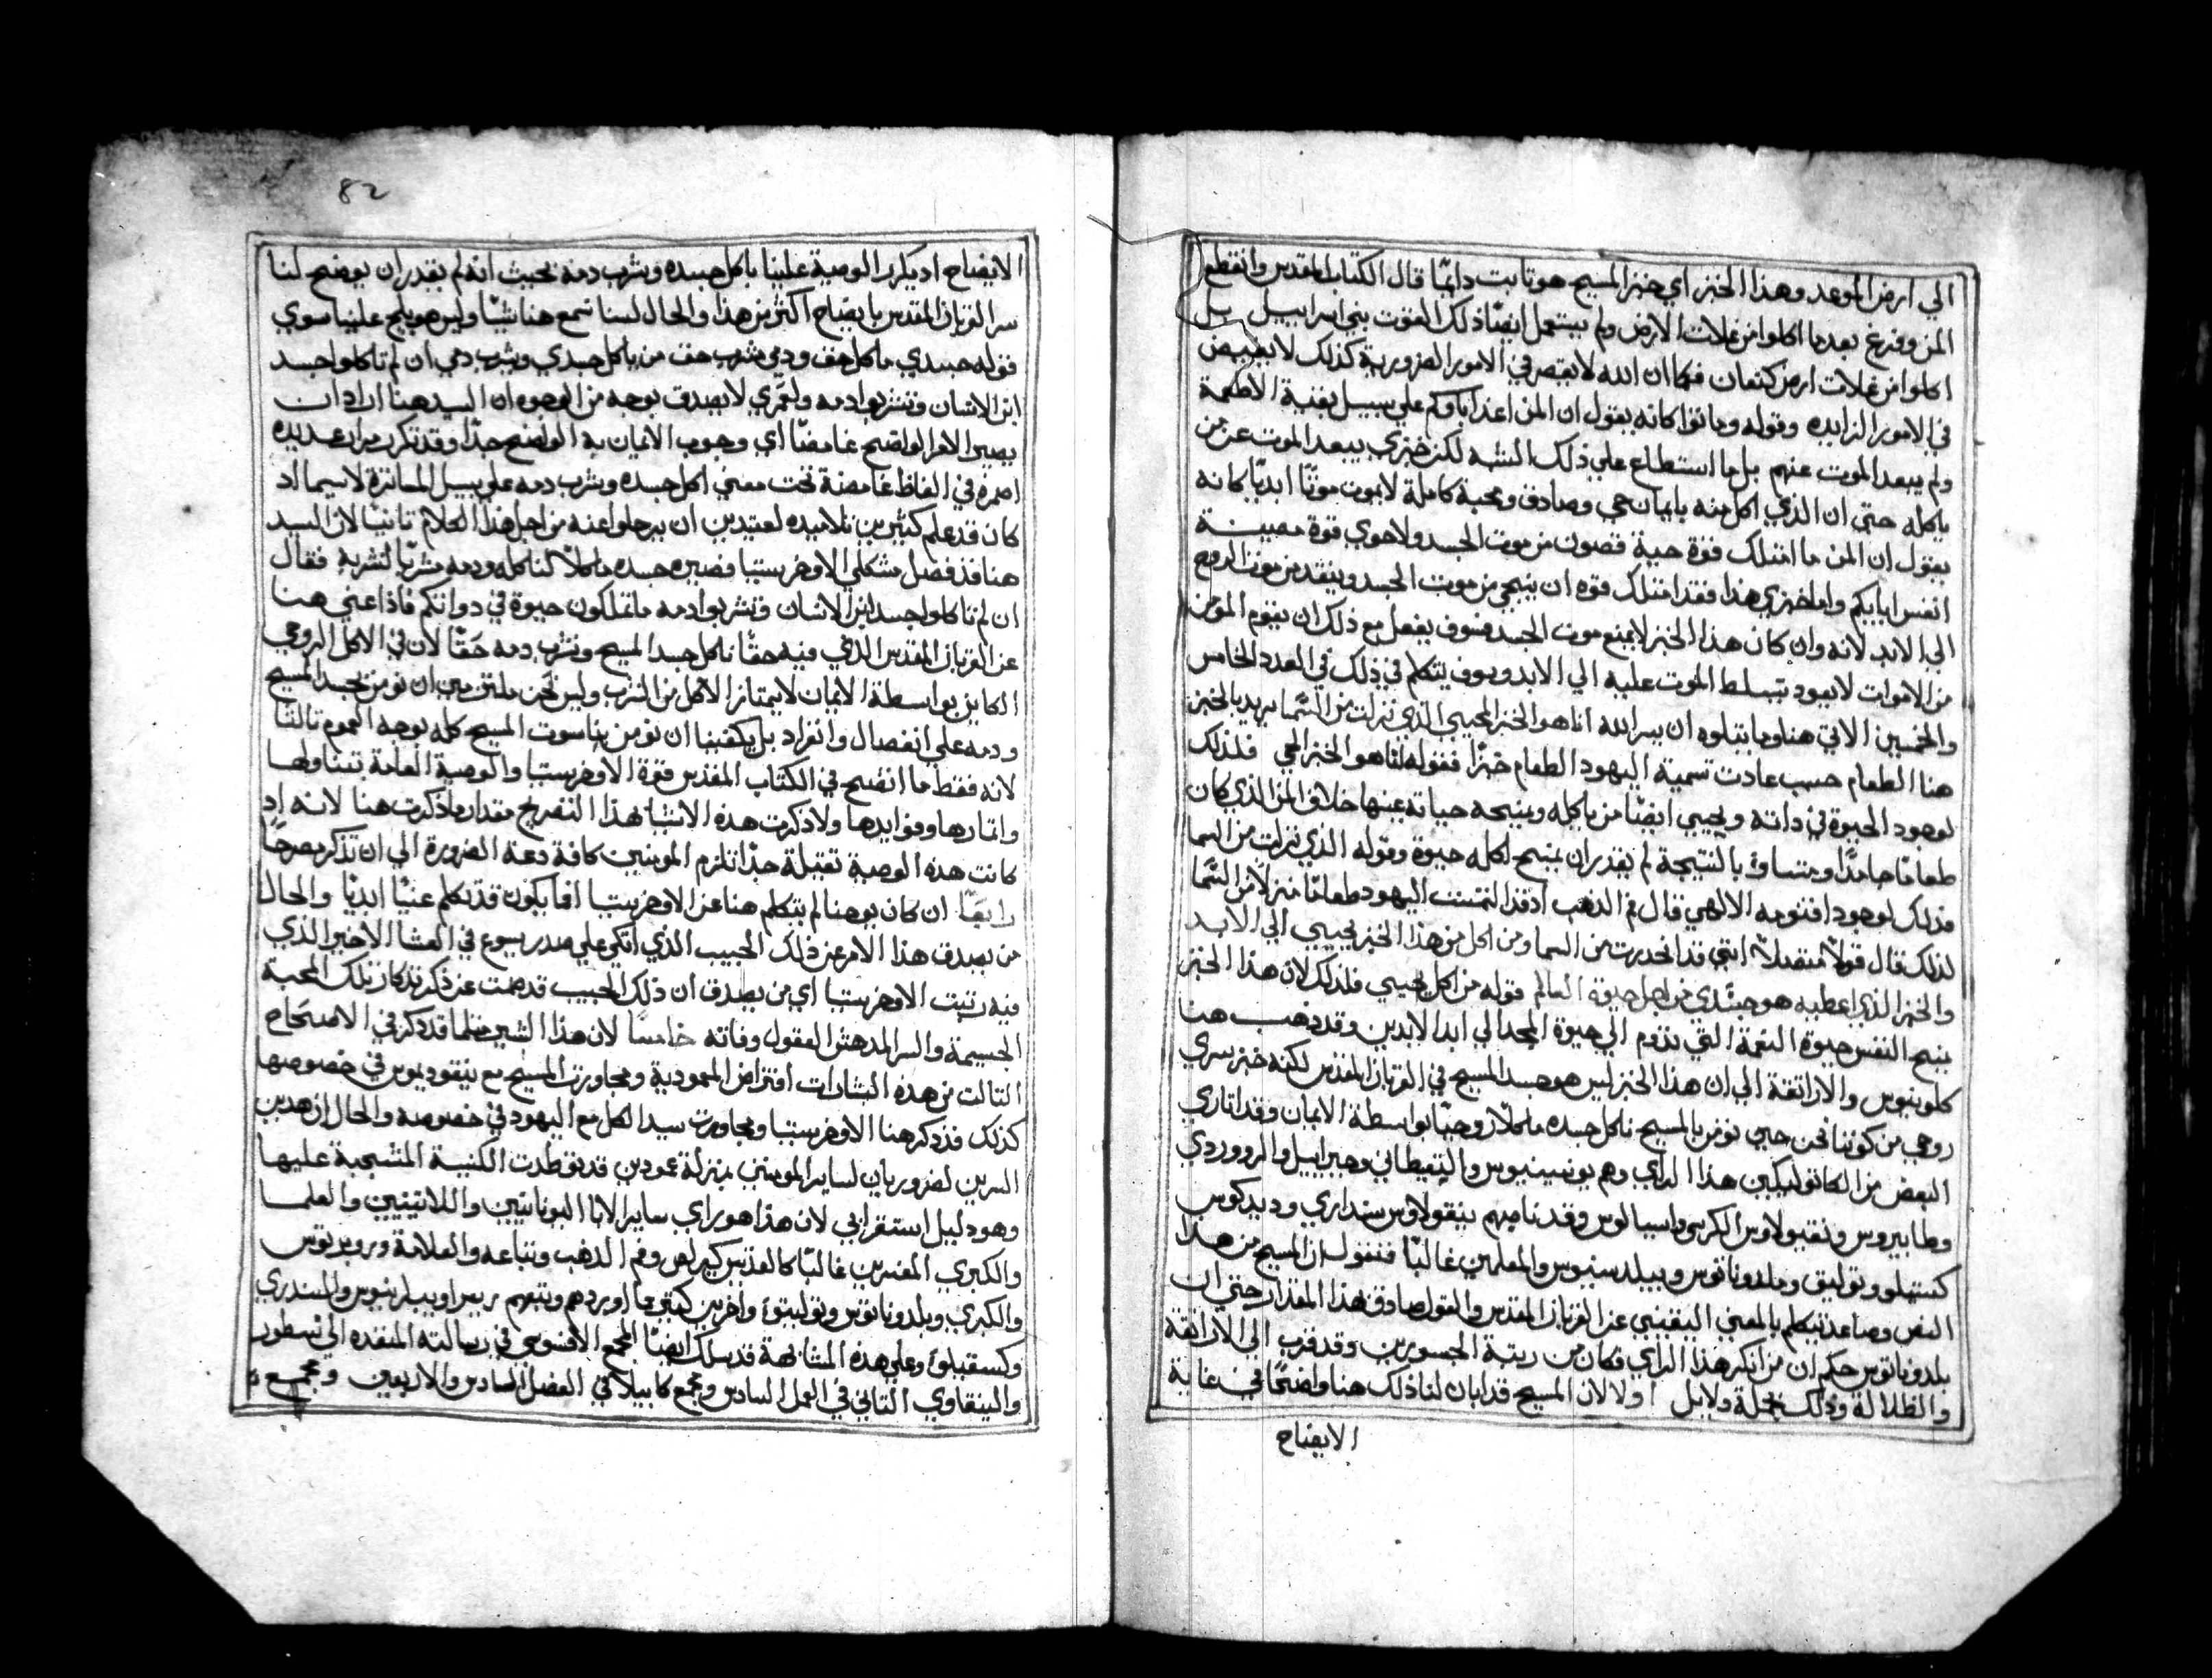 الي ارض الموعد وهذا الخبز اي خبز المسيح هو ثابت دايمًا قال الكتاب المقدس وانقطع
المن وفرغ بعدما اكلوا من غلات الارض ولم يستعمل ايضًا ذلك القوت بني اسراييل بل
اكلوا من غلات ارض كنعان فكما ان الله لا يقصر في الامور الضرورية كذلك لا يفيض
في الامور الزايده وقوله وماتوا كانه يقول ان المن اغذا اباوكم علي سبيل بقية الاطعمة
ولم يبعد الموت عنهم بل ما استطاع علي ذلك البته لكن خبزي يبعد الموت عن من
ياكله حتي ان الذي اكل منه بايمان حي وصادق ومحبة كاملة لا يموت موتًا ابديًا كانه
يقول ان المن ما امتلك قوة حية تصون من موت الجسد ولا حوي قوة محيية
انفس ابايكم واما خبزي هذا فقد امتلك قوه ان ينجي من موت الجسد وينقد من موت الروح
الي الابد لانه وان كان هذا الخبز لا يمنع موت الجسد فسوف يفعل مع ذلك ان يقوم المومن
من الاموات لا يعود يتسلط الموت عليه الي الابد وسوف يتكلم في ذلك في العدد الخامس
والخمسين الاتي هنا وما يتلوه ان يسر الله انا هو الخبز المحيي الذي نزلت من السما يريد بالخبز
هنا الطعام حسب عادت تسمية اليهود الطعام خبزًا فقوله انا هو الخبز الحي فلذلك
لوجود الحيوة في داته ويحيي ايضًا من ياكله ويمنحه حياته عينها خلاف المن الذي كان
طعامًا جامدًا ومتساوي بالنتيجة لم يقدر ان يمنح لاكله حيوة وقوله الذي نزلت من السما
فذلك لوجود اقنومه الالهي قال فم الذهب اد قد التمست اليهود طعامًا منزلاً من السما
لذلك قال قولاً متصلاً انني قد انحدرت من السما ومن اكل من هذا الخبز يحيي الي الابد
والخبز الذي اعطيه هو جسدي من اجل حيوة العالم قوله من اكل يحيي فلذلك لان هذا الخبز
يمنح النفس حيوة النعمة التي تدوم الي حيوة المجد الي ابد الابدين وقد ذهب هنا
كلوينوس والاراتقة الي ان هذا الخبز ليس هو جسد المسيح في القربان المقدس لكنه خبز سري
روحي من كوننا نحن حين نومن بالمسيح ناكل جسده ماكلاً روحيًا بواسطة الايمان وقد اتاري
البعض من الكاتوليكيين هذا الراي وهم يونسينيوس واليتيطاني وجبراييل والرووردي
وطابيروس ونقيولاوس الكرسي واسيالوس وقد ناصبهم بنقولاوس سنداري وديدكوس
كستيلو وتوليتي وملدوناتوس وبيلدسنيوس والمعلمين غالبًا فنقول ان المسيح من هذا
النص وصاعد يتكلم بالمعني اليقيني عن القربان المقدس والقول صادق بهذا المقدار حتي ان
بلدوناتوس حكم ان من انكر هذا الراي فكان من ريبة الجسورين وقد قرب الي الاراتقة
والظلالة وذلك بجملة دلايل اولا لان المسيح قد ابان لنا ذلك هنا واضحًا في غاية
الايضاح
82
الايضاح اد يكرر الوصية علينا باكل جسده وشرب دمه بحيث انه لم يقدر ان يوضح لنا
سر القربان المقدس بايضاح اكثر من هذا والحال لسنا نسمع هنا شيًا وليس هو يلج علينا سوي
قوله جسدي ماكل حق ودمي مشرب حق من ياكل جسدي ويشرب دمي ان لم تاكلوا جسد
ابن الانسان وتشربوا دمه ولعمري لا يصدق بوجه من الوجوه ان السيد هنا اراد ان
يصير الامر الواضح غامضًا اي وجوب الايمان به الواضح جدًا وقد تكرر مرار عديده
اضمره في الفاظ غامضة تحت معني اكل جسده وشرب دمه علي سبيل المماتزة لاسيما اد
كان قد علم كثيرين تلاميده لعتيدين ان يرحلوا عنه من اجل هذا الكلام ثانيًا لان السيد
هنا قد فصل مشكلي الاوخرستيا فصير جسده ماكلاً لناكله ودمه مشربًا لنشربه فقال
ان لم تاكلوا جسد ابن الانسان وتشربوا دمه ما تملكون حيوة في دواتكم فاذا عني هنا
عن القربان المقدس الذي فيه حقًا ناكل جسد المسيح ونشرب دمه حَقًا لان في الاكل الروحي
الكاين بواسطة الايمان لا يمتاز الاكل من الشرب وليس نحن ملتزمين ان نومن بجسد المسيح
ودمه علي انفصال وانفراد بل يكفينا ان نومن بناسوت المسيح كله بوجه العموم ثالثًا
لانه فقط ما اتضح في الكتاب المقدس قوة الاوخرستيا والوصية العامة بتناولها
واثمارها وفوايدها ولا ذكرت هذه الاشيا بهذا التصريح مقدار ما ذكرت هنا لانه اد
كانت هذه الوصية ثقيلة جدًا تلزم المومنين كافة دعة الضرورة الي ان تذكر مصرحًا
رابعًا ان كان يوحنا لم يتكلم هنا عن الاوخرستيا افما يكون قد تكلم عنها ابديًا والحال
من يصدق هذا الامر عن ذلك الحبيب الذي اتكي علي صدر يسوع في العشا الاخير الذي
فيه رتبت الاوخرستيا اي من يصدق ان ذلك الحبيب قد صمت عن ذكر تدكار تلك المحبة
الجسيمة والسر المدهش العقول وفاته خامسًا لان هذا البشير مثلما قد دكر في الاصحاح
الثالث من هذه البشارات افتراض المعمودية ومجاورت المسيح مع نيقوديموس في خصوصها
كذلك قد دكر هنا الاوخرستيا ومجاورت سيد الكل مع اليهود في خصوصه والحال ان هدين
السرين لضروريان لساير المومنين بمنزلة عمودين قد توطدت الكنيسة المتسيحية عليها
وهو دليل استقرايي لان هذا هو راي ساير الابا اليونانيين واللاتينيين والعلما
والكبري المفسرين غالبًا كالقديس كيرلص وفم الدهب وتباعه والعلامة وروبرتوس
والكبري وبلدوناتوس وتوليتو واخرين كتيرين اوردهم وتبعهم بريراو وبيلرينوس والسندري
وكستيلو وعلي هذه المشابهة قد سلك ايضًا المجمع الافسوسي في رسالته المنفذه الي نسطور
والنيقاوي الثاني في العمل السادس ومجمع كابيلا في الفصل السادس والاربعين ومجمع